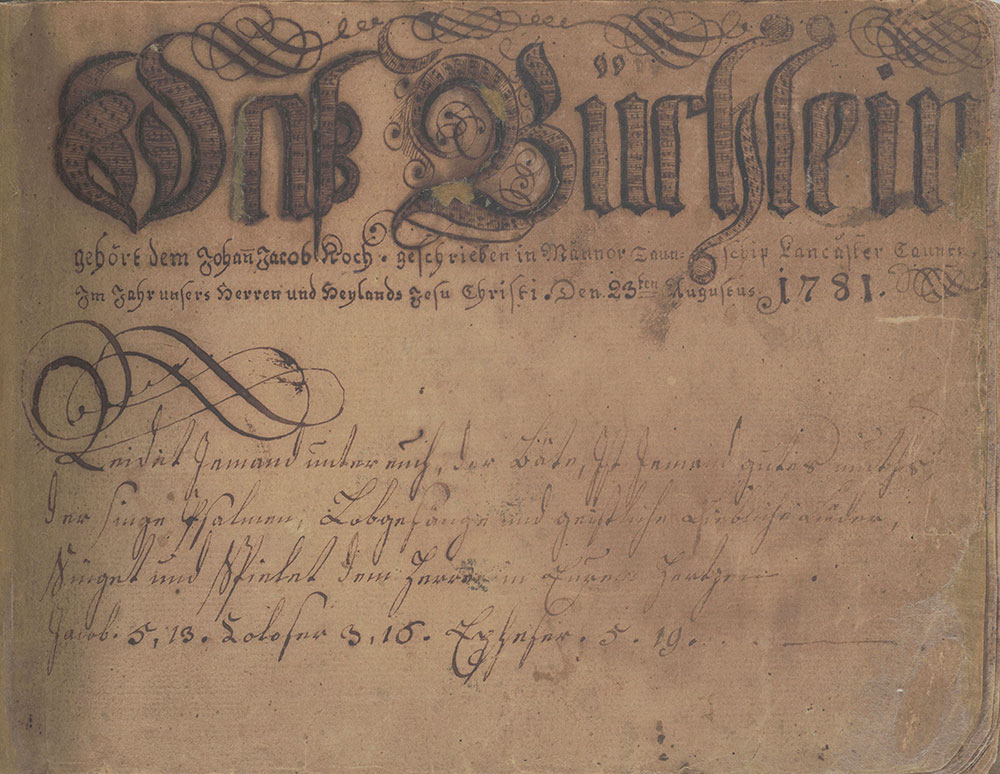 Daß Büchlein
gehört dem Johañ Jacob Koch. geschrieben in Männor Taun- schip Lancäster Caunty.
Im Jahr unsers Herren und Heylands Jesu Christi. Den 23ten Augustus. 1781.
Leidet Jemand unter euch, der Bäte, Ist Jemand gutes muths,
der singe Psalmen, Lobgesänge und geistliche liebliche lieder,
Singet und Spielet dem Herren in Euren Hertzen.
Jacob. 5, 13. Coloser 3, 16. Epheser. 5. 19.